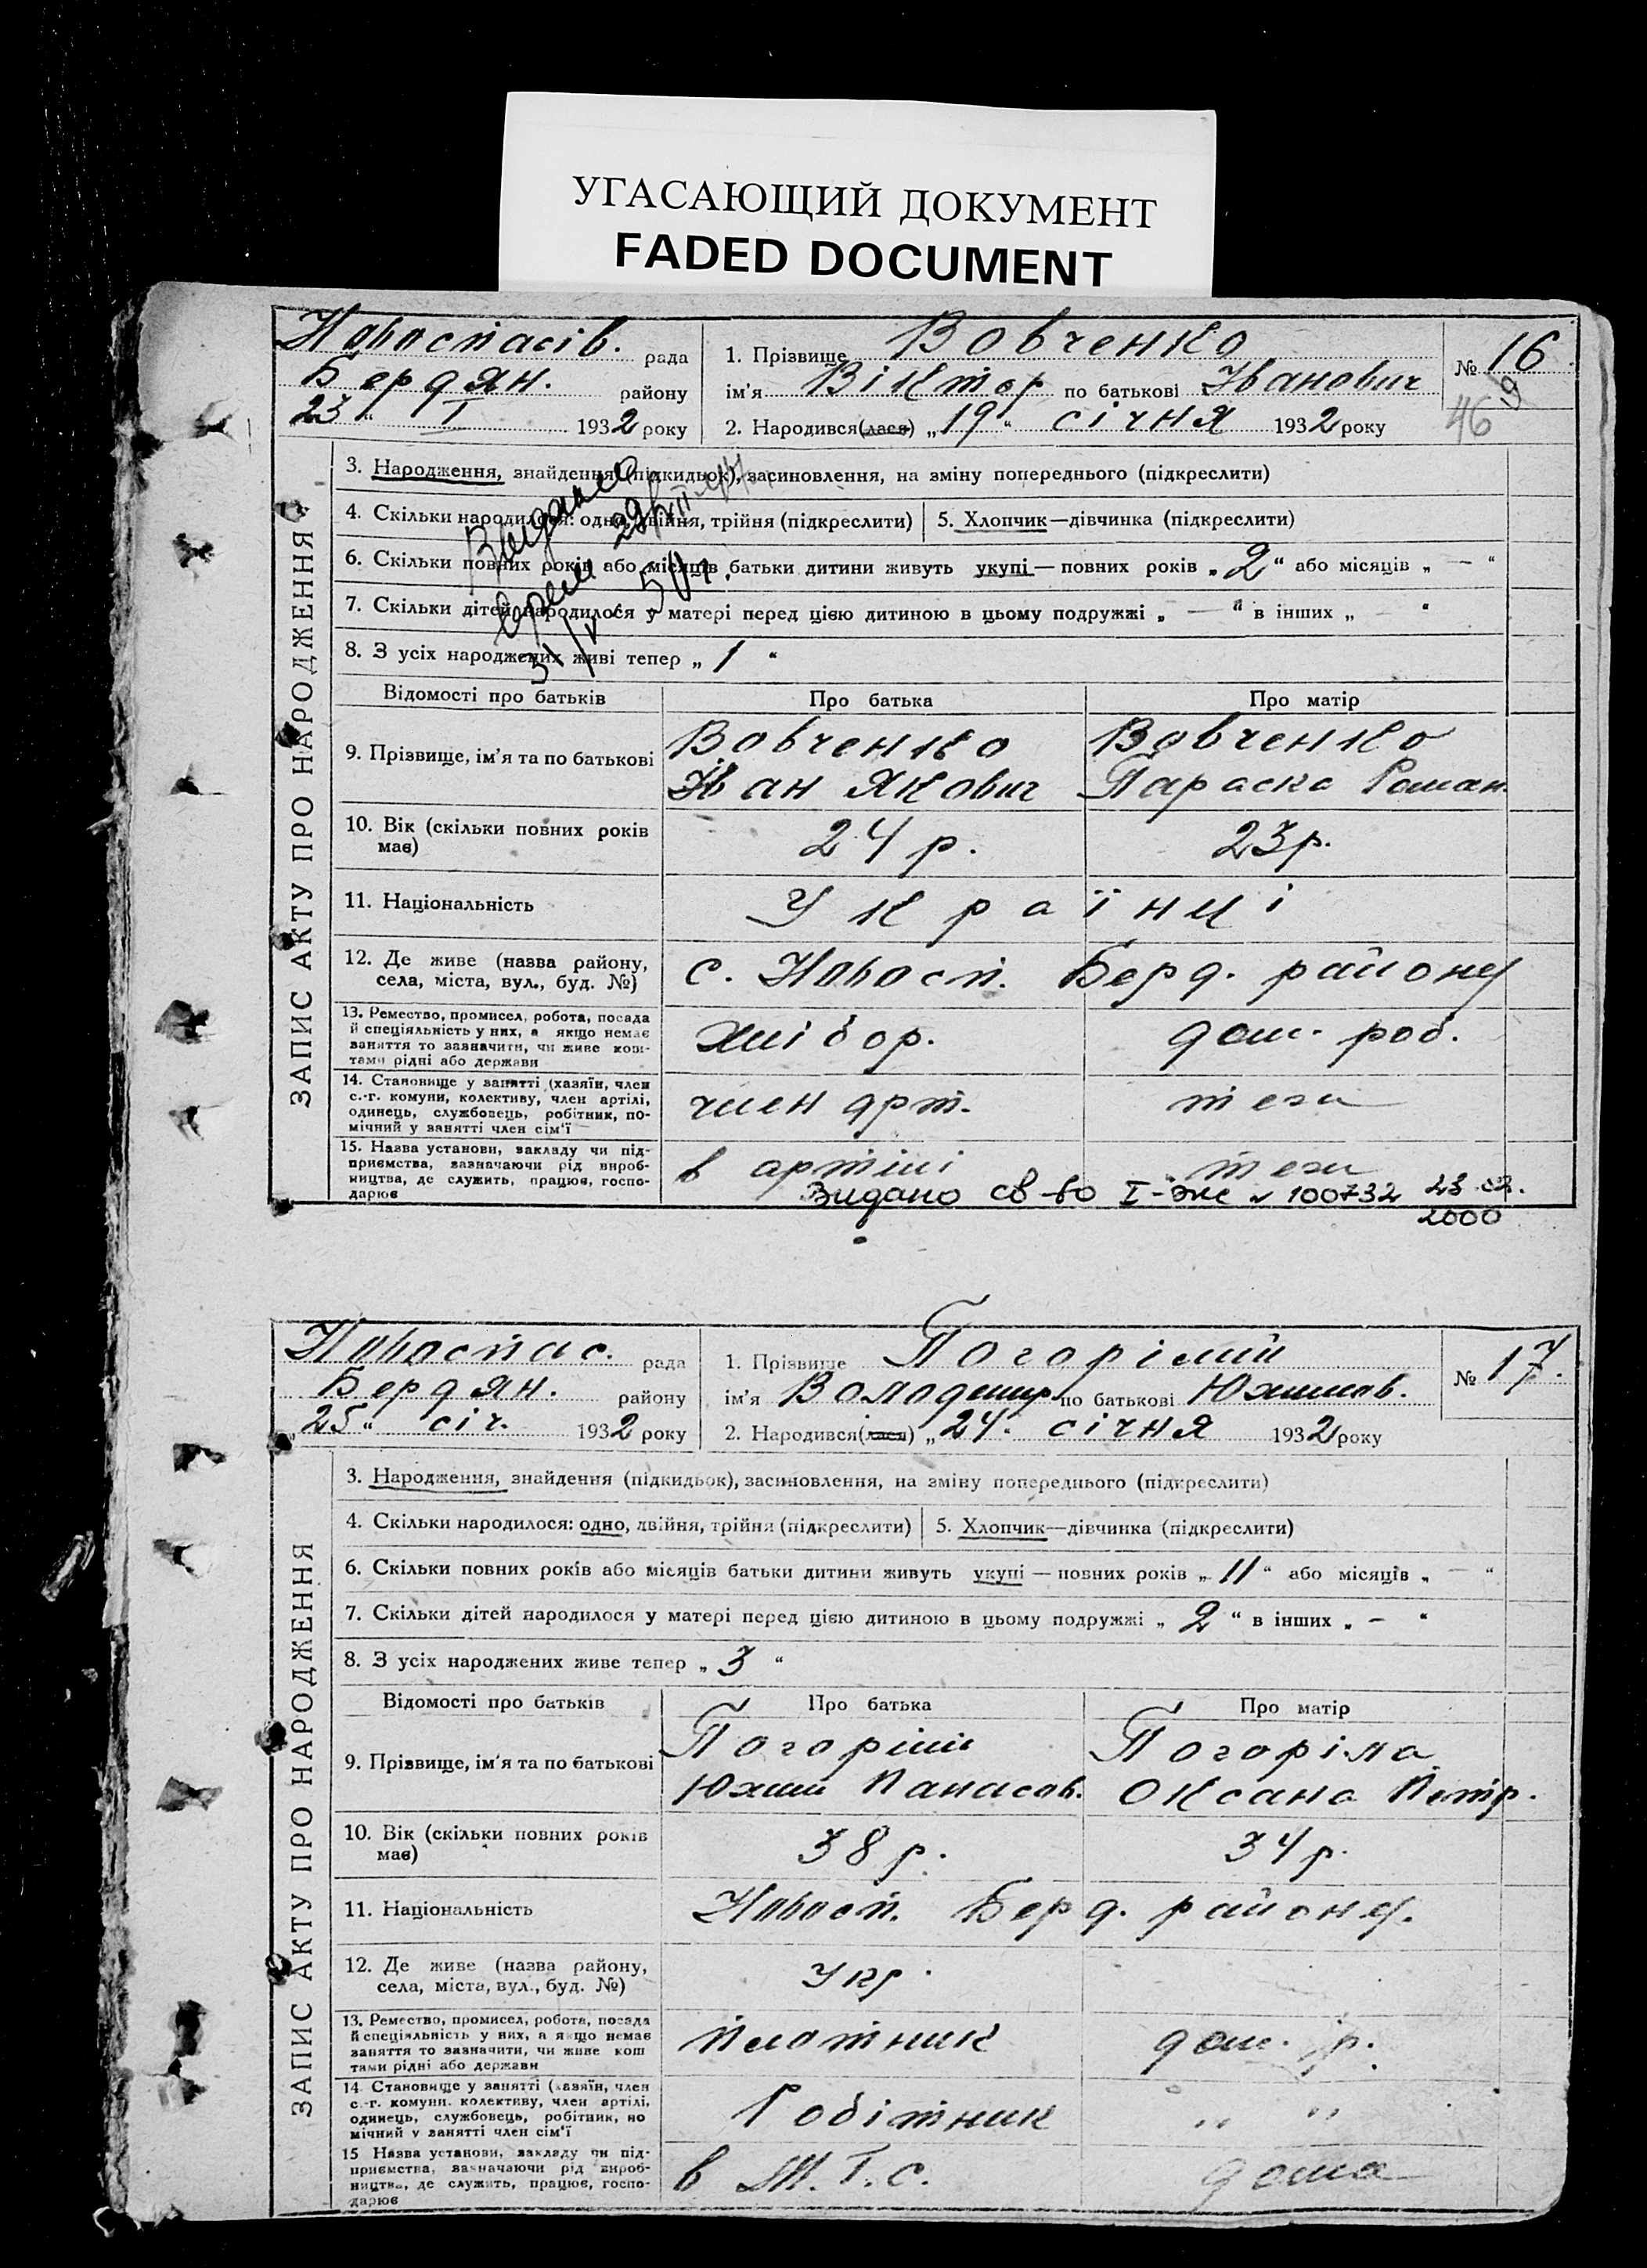 УГАСАЮЩИЙ ДОКУМЕНТ
FADED DOCUMENT
Новоспасів. рада
Бердян. району
23 " I 1932 року
1. Прізвище Вовченко
ім'я Віктор по батькові Іванович
2. Народився(лася) „19" січня 1932 року
№ 16
9
46
ЗАПИС АКТУ ПРО НАРОДЖЕННЯ
3. Народження, знайдення (підкидьок), засиновлення, на зміну попереднього (підкреслити)
4. Скільки народилося: одно, двійня, трійня (підкреслити) 5. Хлопчик—дівчинка (підкреслити)
6. Скільки повних років або місяців батьки дитини живуть укупі — повних років „ 2 " або місяців „ — "
7. Скільки дітей народилося у матері перед цією дитиною в цьому подружжі „ — " в інших „ — "
8. З усіх народжених живі тепер „ 1 "
Видано
Відомості про батьків Про батька Про матір
9. Прізвище, ім'я та по батькові Вовченко Вовченко
Іван Якович Параска Роман.
10. Вік (скільки повних років має) 24 р. 23 р.
11. Національність Українці
12. Де живе (назва району, села, міста, вул., буд. №) с. Новосп. Берд. району
13. Ремество, промисел, робота, посада
й спеціяльність у них, а якщо немає
заняття то зазначити, чи живе кош-
тами рідні або держави
хлібор. дом. роб.
14. Становище у занятті (хазяїн, член
с.-г. комуни, колективу, член артілі,
одинець, службовець, робітник, по-
мічний у занятті член сім'ї
член арт. теж
15. Назва установи, закладу чи під-
приємства, зазначаючи рід вироб-
ництва, де служить, працює, госпо-
дарює
в артілі теж
Видано св-во I-жс № 100732 23 02. 2000
Новоспас. рада
Бердян. району
„25" січ. 1932 року
1. Прізвище Погорілий
ім'я Володимир по батькові Юхимов.
2. Народився(лася) „24. січня 1932 року
№ 17.
ЗАПИС АКТУ ПРО НАРОДЖЕННЯ
3. Народження, знайдення (підкидьок), засиновлення, на зміну попереднього (підкреслити)
4. Скільки народилося: одно, двійня, трійня (підкреслити) 5. Хлопчик—дівчинка (підкреслити)
6. Скільки повних років або місяців батьки дитини живуть укупі — повних років „ 11 " або місяців „ — "
7. Скільки дітей народилося у матері перед цією дитиною в цьому подружжі „ 2 " в інших „ - "
8. З усіх народжених живе тепер „ 3 "
Відомості про батьків Про батька Про матір
9. Прізвище, ім'я та по батькові Погорілий Погоріла
Юхим Панасов. Оксана Петр.
10. Вік (скільки повних років має) 38 р. 34 р.
11. Національність Новосп. Берд. району.
12. Де живе (назва району, села, міста, вул., буд. №) Укр.
13. Ремество, промисел, робота, посада
й спеціяльність у них, а якщо немає
заняття то зазначити, чи живе кош
тами рідні або держави
плотник дом. р.
14. Становище у занятті (хазяїн, член
с.-г. комуни. колективу, член артілі,
одинець, службовець, робітник, по
мічний у занятті член сім'ї
Робітник " "
15 Назва установи, закладу чи під-
приємства, зазначаючи рід вироб-
ництва, де служить, працює, госпо-
дарює
в М.Т.С. дома